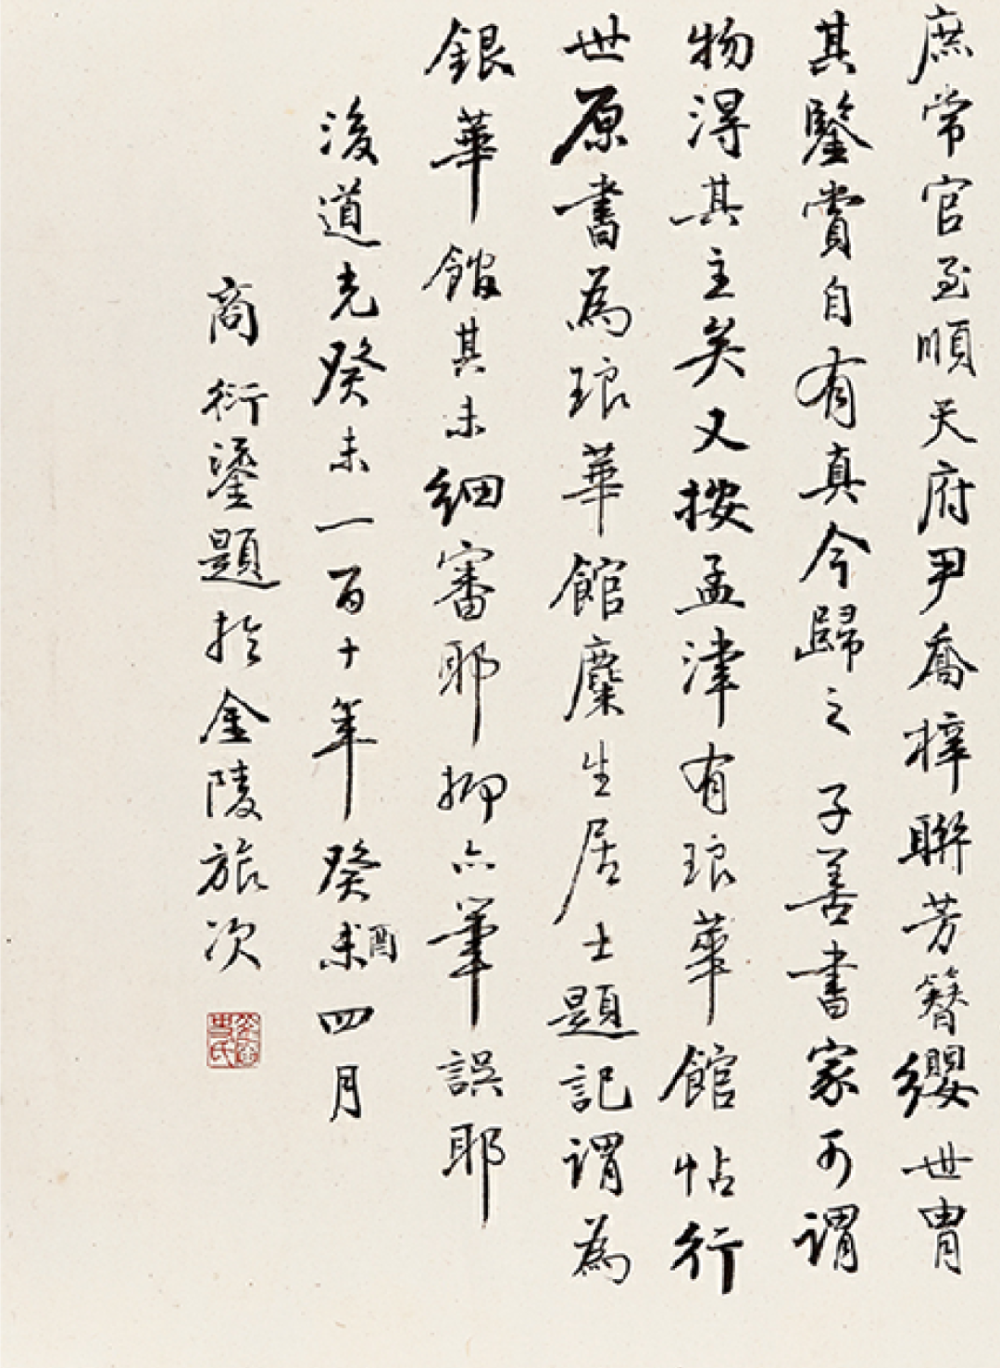 庶常官至順天府尹喬梓聯芳簪纓世胄
其鑒賞自有真今歸之子善書家可謂
物得其主矣又按孟津有琅華館帖行
世原書為琅華館麋生居士題記謂為
銀華館其未細審耶抑亦筆誤耶
後道光癸未一百十年癸未酉四月
商衍鎏題於金陵旅次